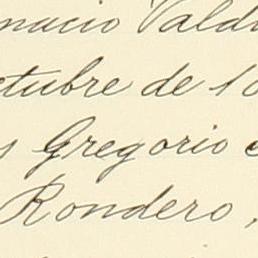 nacio Vald
ctubre de 1
Gregorio
Rondero,